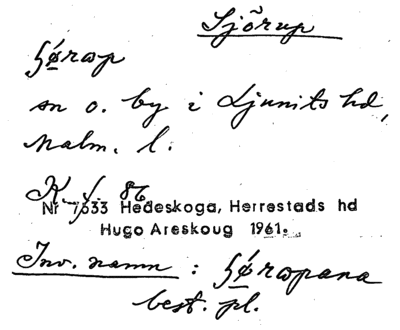 Sjörup
ʃǿ̱rəp
sn o. by i Ljunits hd,
Malm. l.
K. f. 86
Nr 7633 Hedeskoga, Herrestads hd
Hugo Areskoug 1961.
Inv. namn : ʃǿ̱rəpana
best. pl.